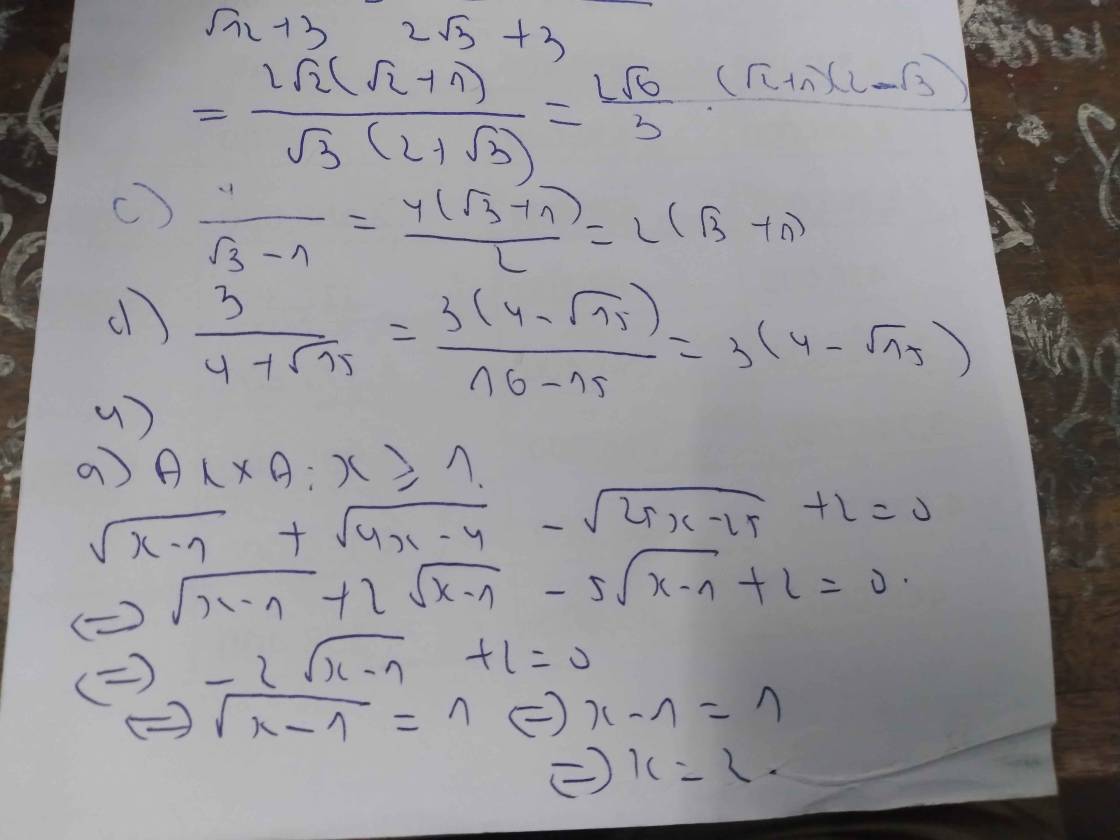 √12+3 2√3 +3
= 2√2(√2+1) / √3 (2+√3) = 2√6 / 3 . (√2+1)(2-√3)
c) 4 / √3 -1 = 4(√3+1) / 2 = 2(√3 +1)
d) 3 / 4+√15 = 3(4-√15) / 16-15 = 3(4-√15)
4)
a) ĐKXĐ: x ≥ 1.
√x-1 + √4x-4 - √25x-25 +2=0
⇔ √x-1 +2√x-1 - 5√x-1 +2=0.
⇔ -2√x-1 +2=0
⇔ √x-1 = 1 ⇔ x-1=1
⇔ x=2.